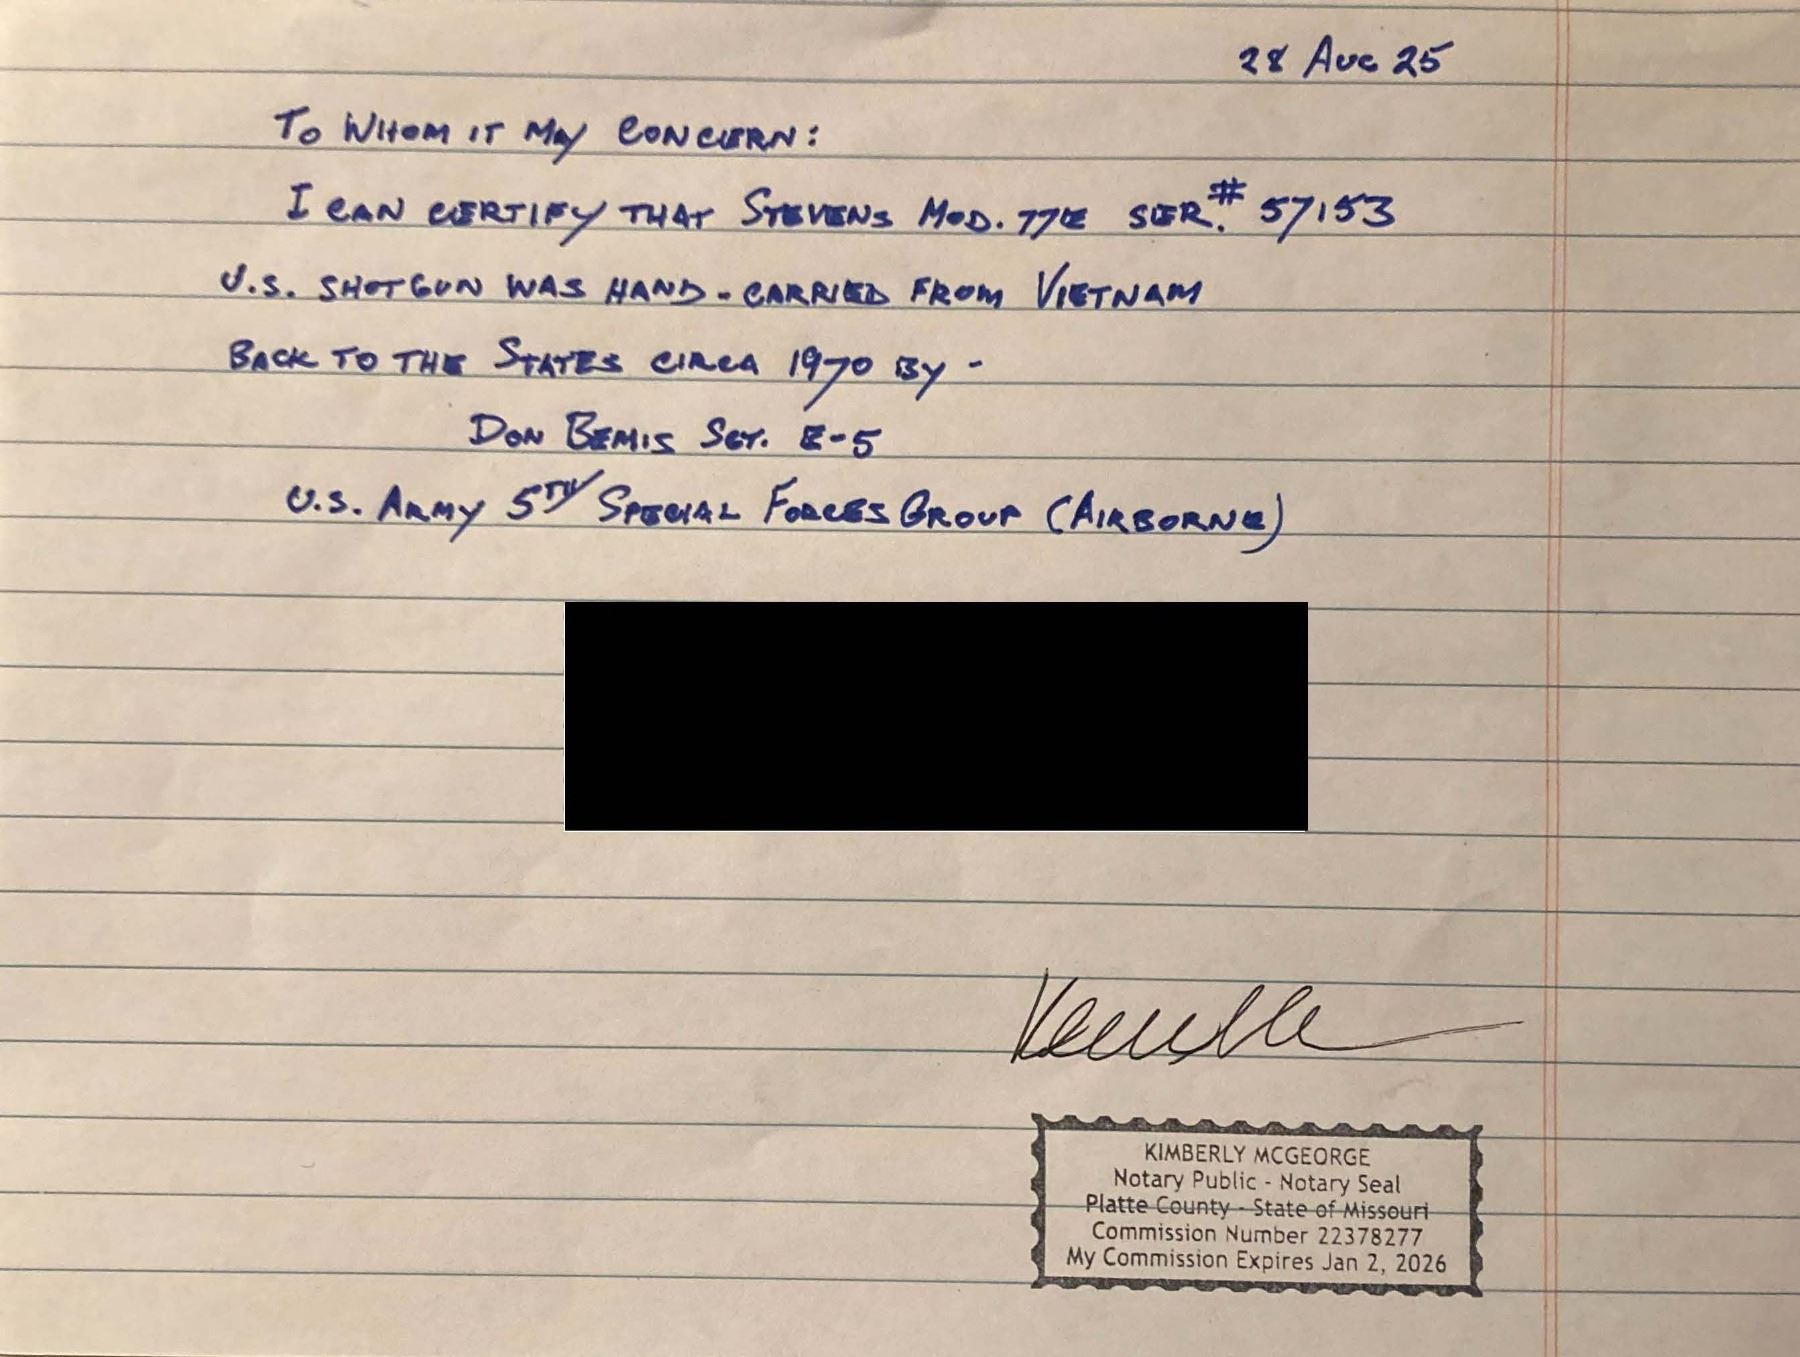 28 AUG 25
TO WHOM IT MAY CONCERN:
I CAN CERTIFY THAT STEVENS MOD. 77E SER.# 57153
U.S. SHOTGUN WAS HAND-CARRIED FROM VIETNAM
BACK TO THE STATES CIRCA 1970 BY -
DON BEMIS SGT. E-5
U.S. ARMY 5TH SPECIAL FORCES GROUP (AIRBORNE)
KIMBERLY MCGEORGE
Notary Public - Notary Seal
Platte County - State of Missouri
Commission Number 22378277
My Commission Expires Jan 2, 2026